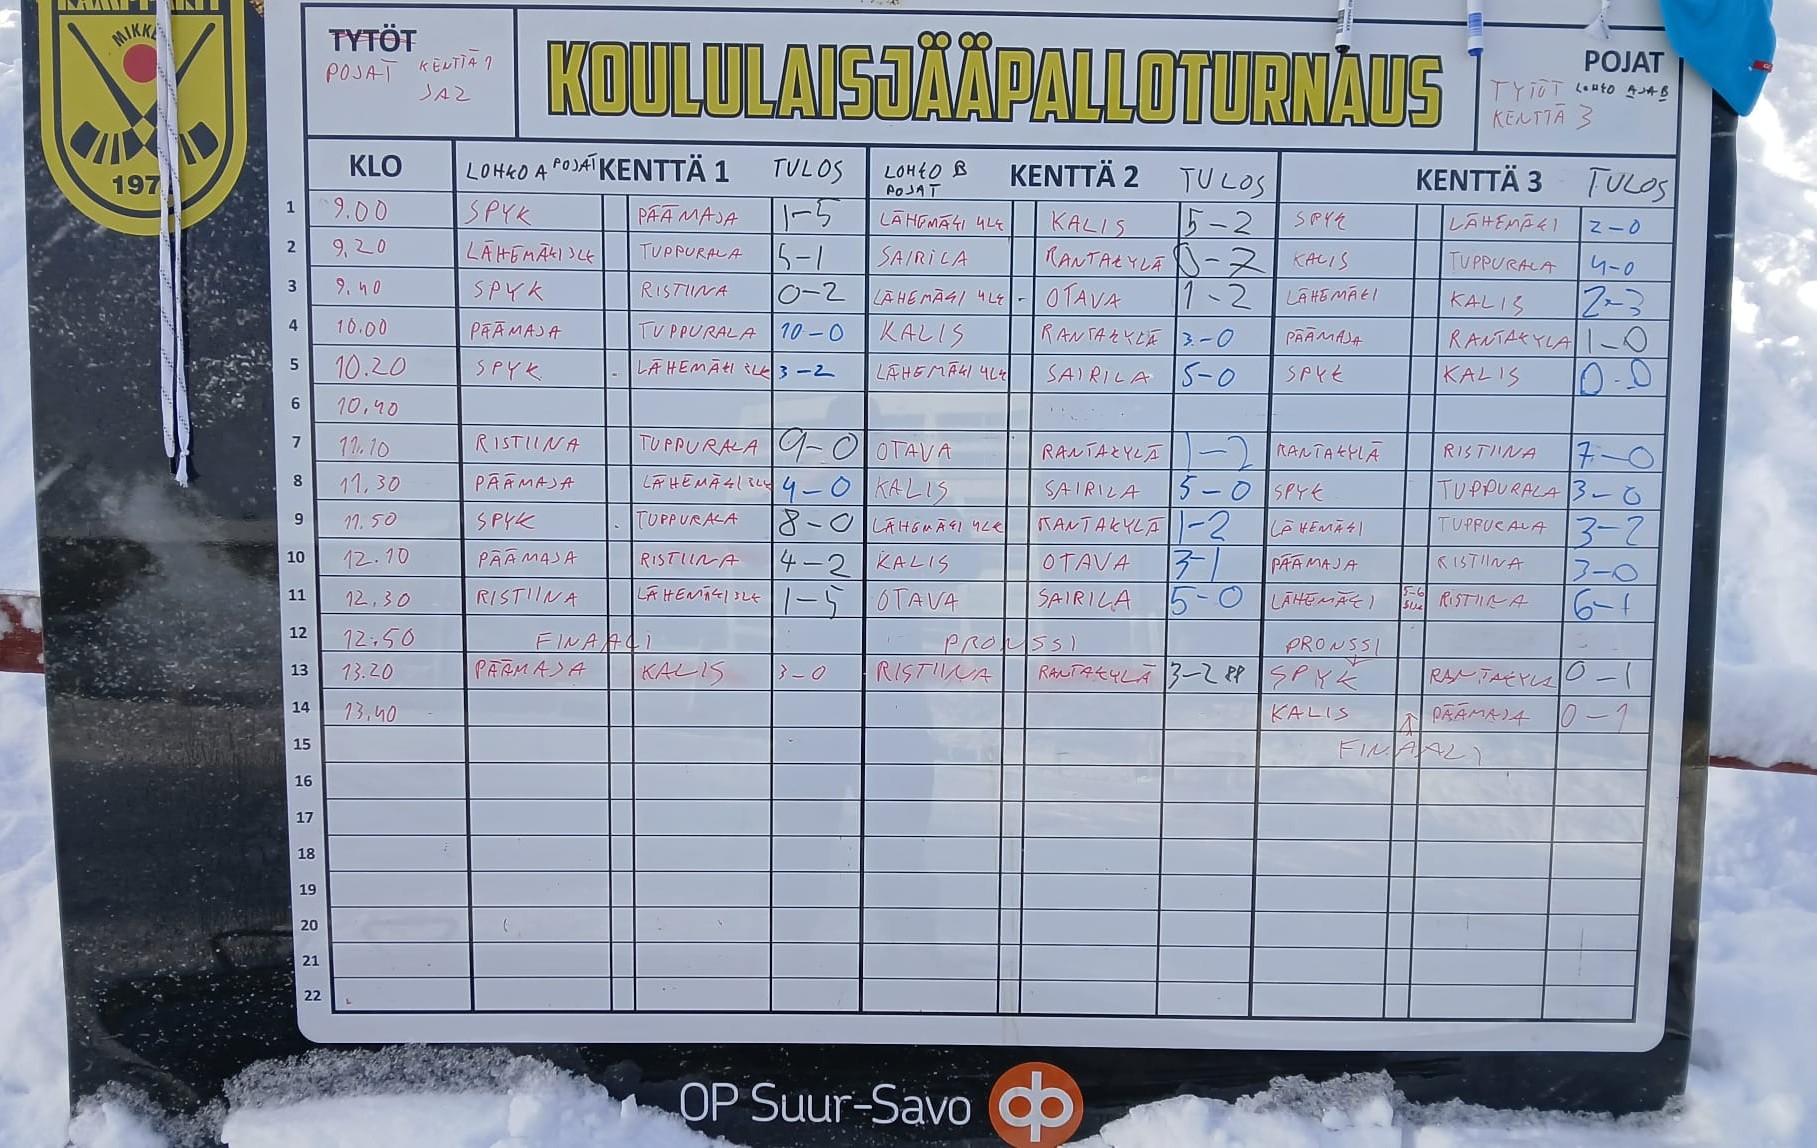 MIKKE
197
TYTÖT
POJAT KENTTÄ 1
JA 2
KOULULAISJÄÄPALLOTURNAUS
POJAT
TYTÖT LOHKO A JA B
KENTTÄ 3
KLO LOHKO A POJAT KENTTÄ 1 TULOS LOHKO B POJAT KENTTÄ 2 TULOS KENTTÄ 3 TULOS
1 9.00 SPYK PÄÄMAJA 1-5 LÄHEMÄKI 4LK KALIS 5-2 SPYK LÄHEMÄKI 2-0
2 9.20 LÄHEMÄKI 3LK TUPPURALA 5-1 SAIRILA RANTAKYLÄ 0-7 KALIS TUPPURALA 4-0
3 9.40 SPYK RISTIINA 0-2 LÄHEMÄKI 4LK - OTAVA 1-2 LÄHEMÄKI KALIS 2-3
4 10.00 PÄÄMAJA TUPPURALA 10-0 KALIS RANTAKYLÄ 3-0 PÄÄMAJA RANTAKYLÄ 1-0
5 10.20 SPYK LÄHEMÄKI 3LK 3-2 LÄHEMÄKI 4LK SAIRILA 5-0 SPYK KALIS 0-0
6 10.40
7 11.10 RISTIINA TUPPURALA 9-0 OTAVA RANTAKYLÄ 1-2 RANTAKYLÄ RISTIINA 7-0
8 11.30 PÄÄMAJA LÄHEMÄKI 3LK 4-0 KALIS SAIRILA 5-0 SPYK TUPPURALA 3-0
9 11.50 SPYK TUPPURALA 8-0 LÄHEMÄKI 4LK RANTAKYLÄ 1-2 LÄHEMÄKI TUPPURALA 3-2
10 12.10 PÄÄMAJA RISTIINA 4-2 KALIS OTAVA 3-1 PÄÄMAJA RISTIINA 3-0
11 12.30 RISTIINA LÄHEMÄKI 3LK 1-5 OTAVA SAIRILA 5-0 LÄHEMÄKI 5-6 RISTIINA 6-1
12 12.50 FINAALI PRONSSI PRONSSI
13 13.20 PÄÄMAJA KALIS 3-0 RISTIINA RANTAKYLÄ 3-2 SPYK RANTAKYLÄ 0-1
14 13.40 KALIS PÄÄMAJA 0-1
15 FINAALI
16
17
18
19
20
21
22
OP Suur-Savo